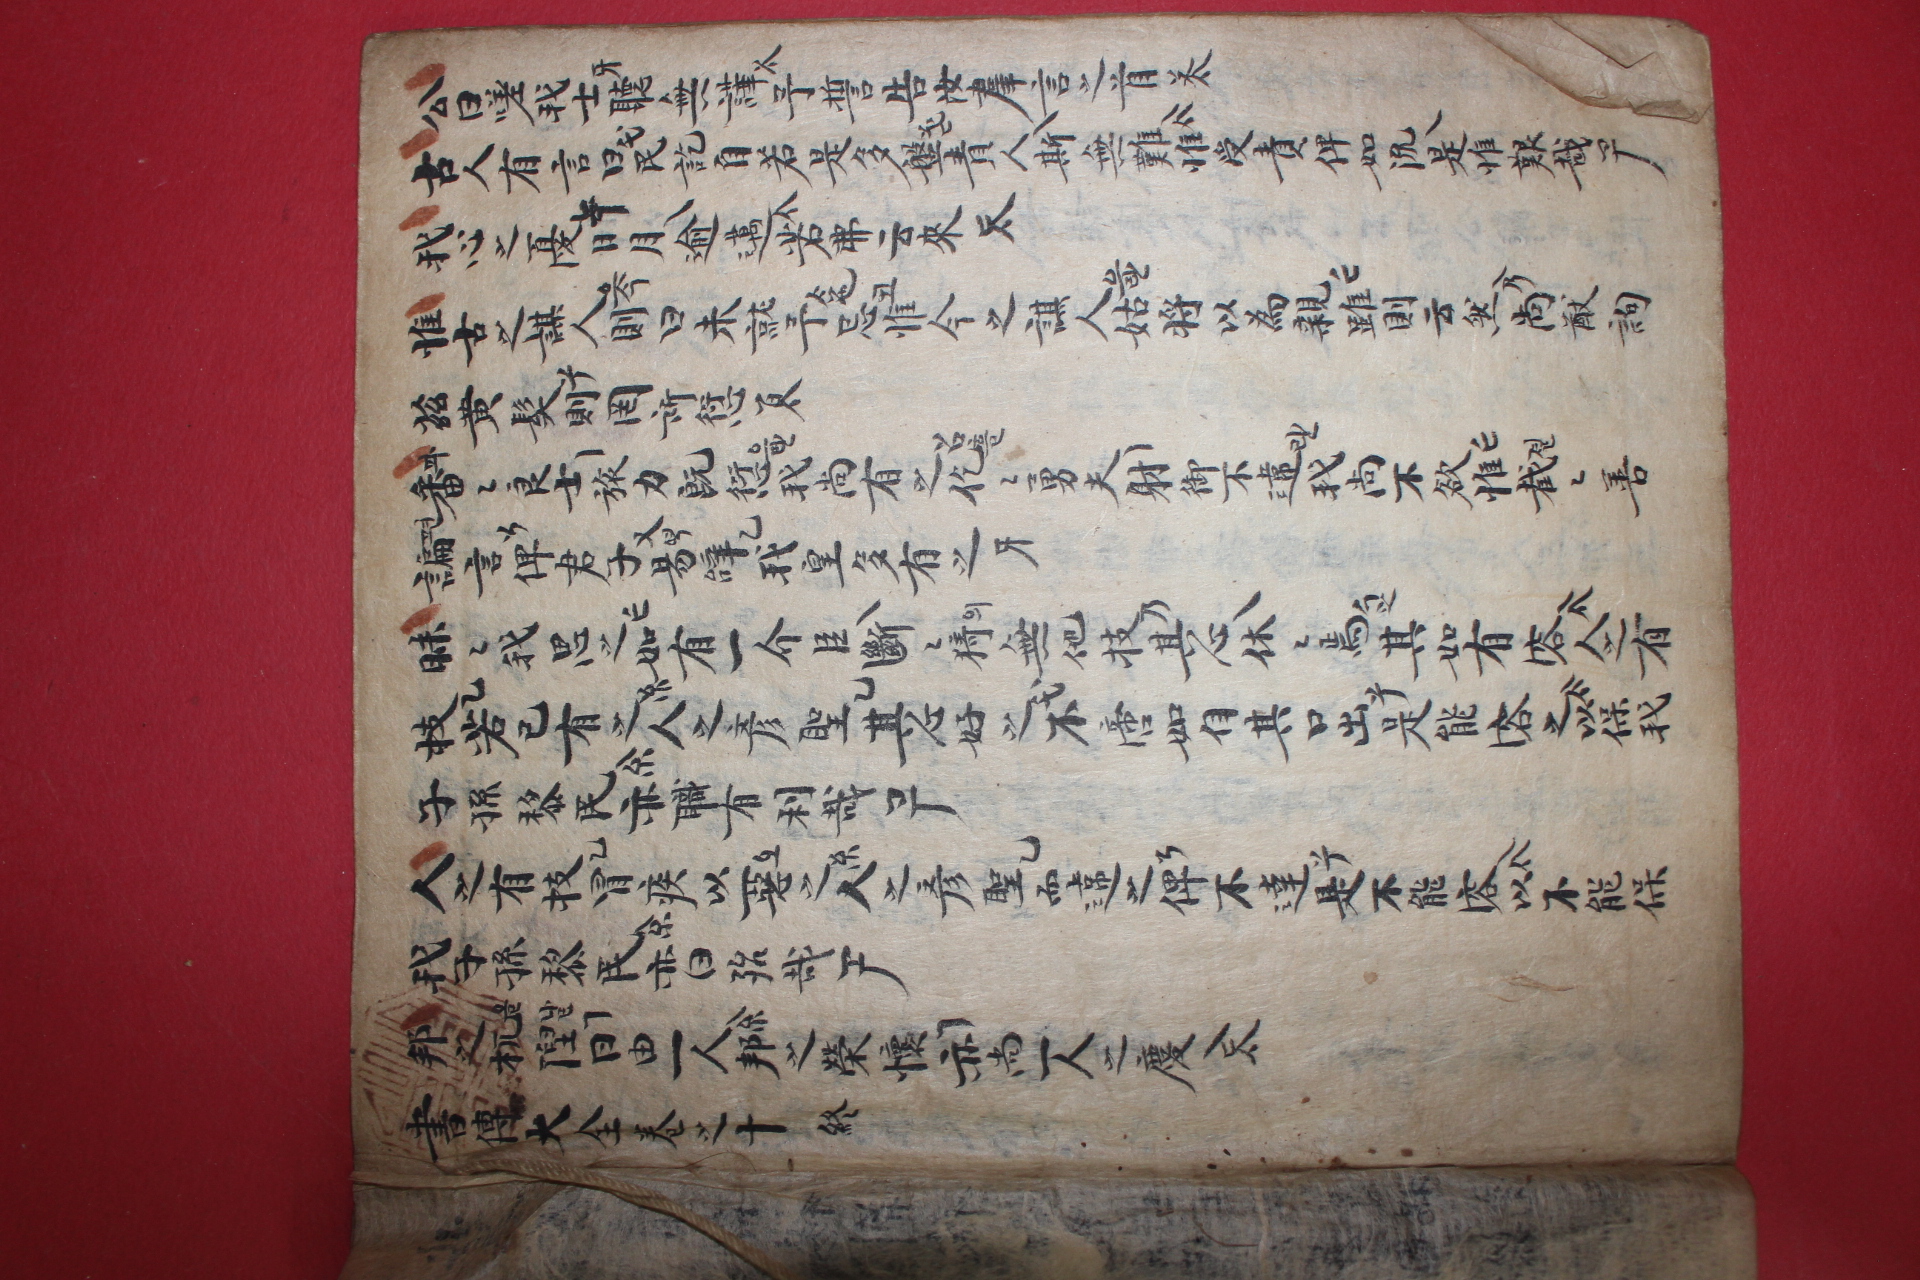 公曰嗟我士聽無譁予誓告汝羣言之首
古人有言曰民訖自若是多盤責人斯無難惟受責俾如流是惟艱哉
我心之憂日月逾邁若弗云來
惟古之謀人則曰未就予忌惟今之謀人姑將以為親雖則云然尚猷詢
玆黃髮則罔所愆
番〻良士旅力旣愆我尚有之仡〻勇夫射御不違我尚不欲惟截〻善
諞言俾君子易辭我皇多有之
昧〻我思之如有一介臣斷〻猗無他技其心休〻焉其如有容人之有
技若己有之人之彥聖其心好之不啻如自其口出是能容之以保我
子孫黎民亦職有利哉
人之有技冒疾以惡之人之彥聖而違之俾不達是不能容以不能保
我子孫黎民亦曰殆哉
邦之杌隉曰由一人邦之榮懷亦尚一人之慶
書傳大全卷之十 終